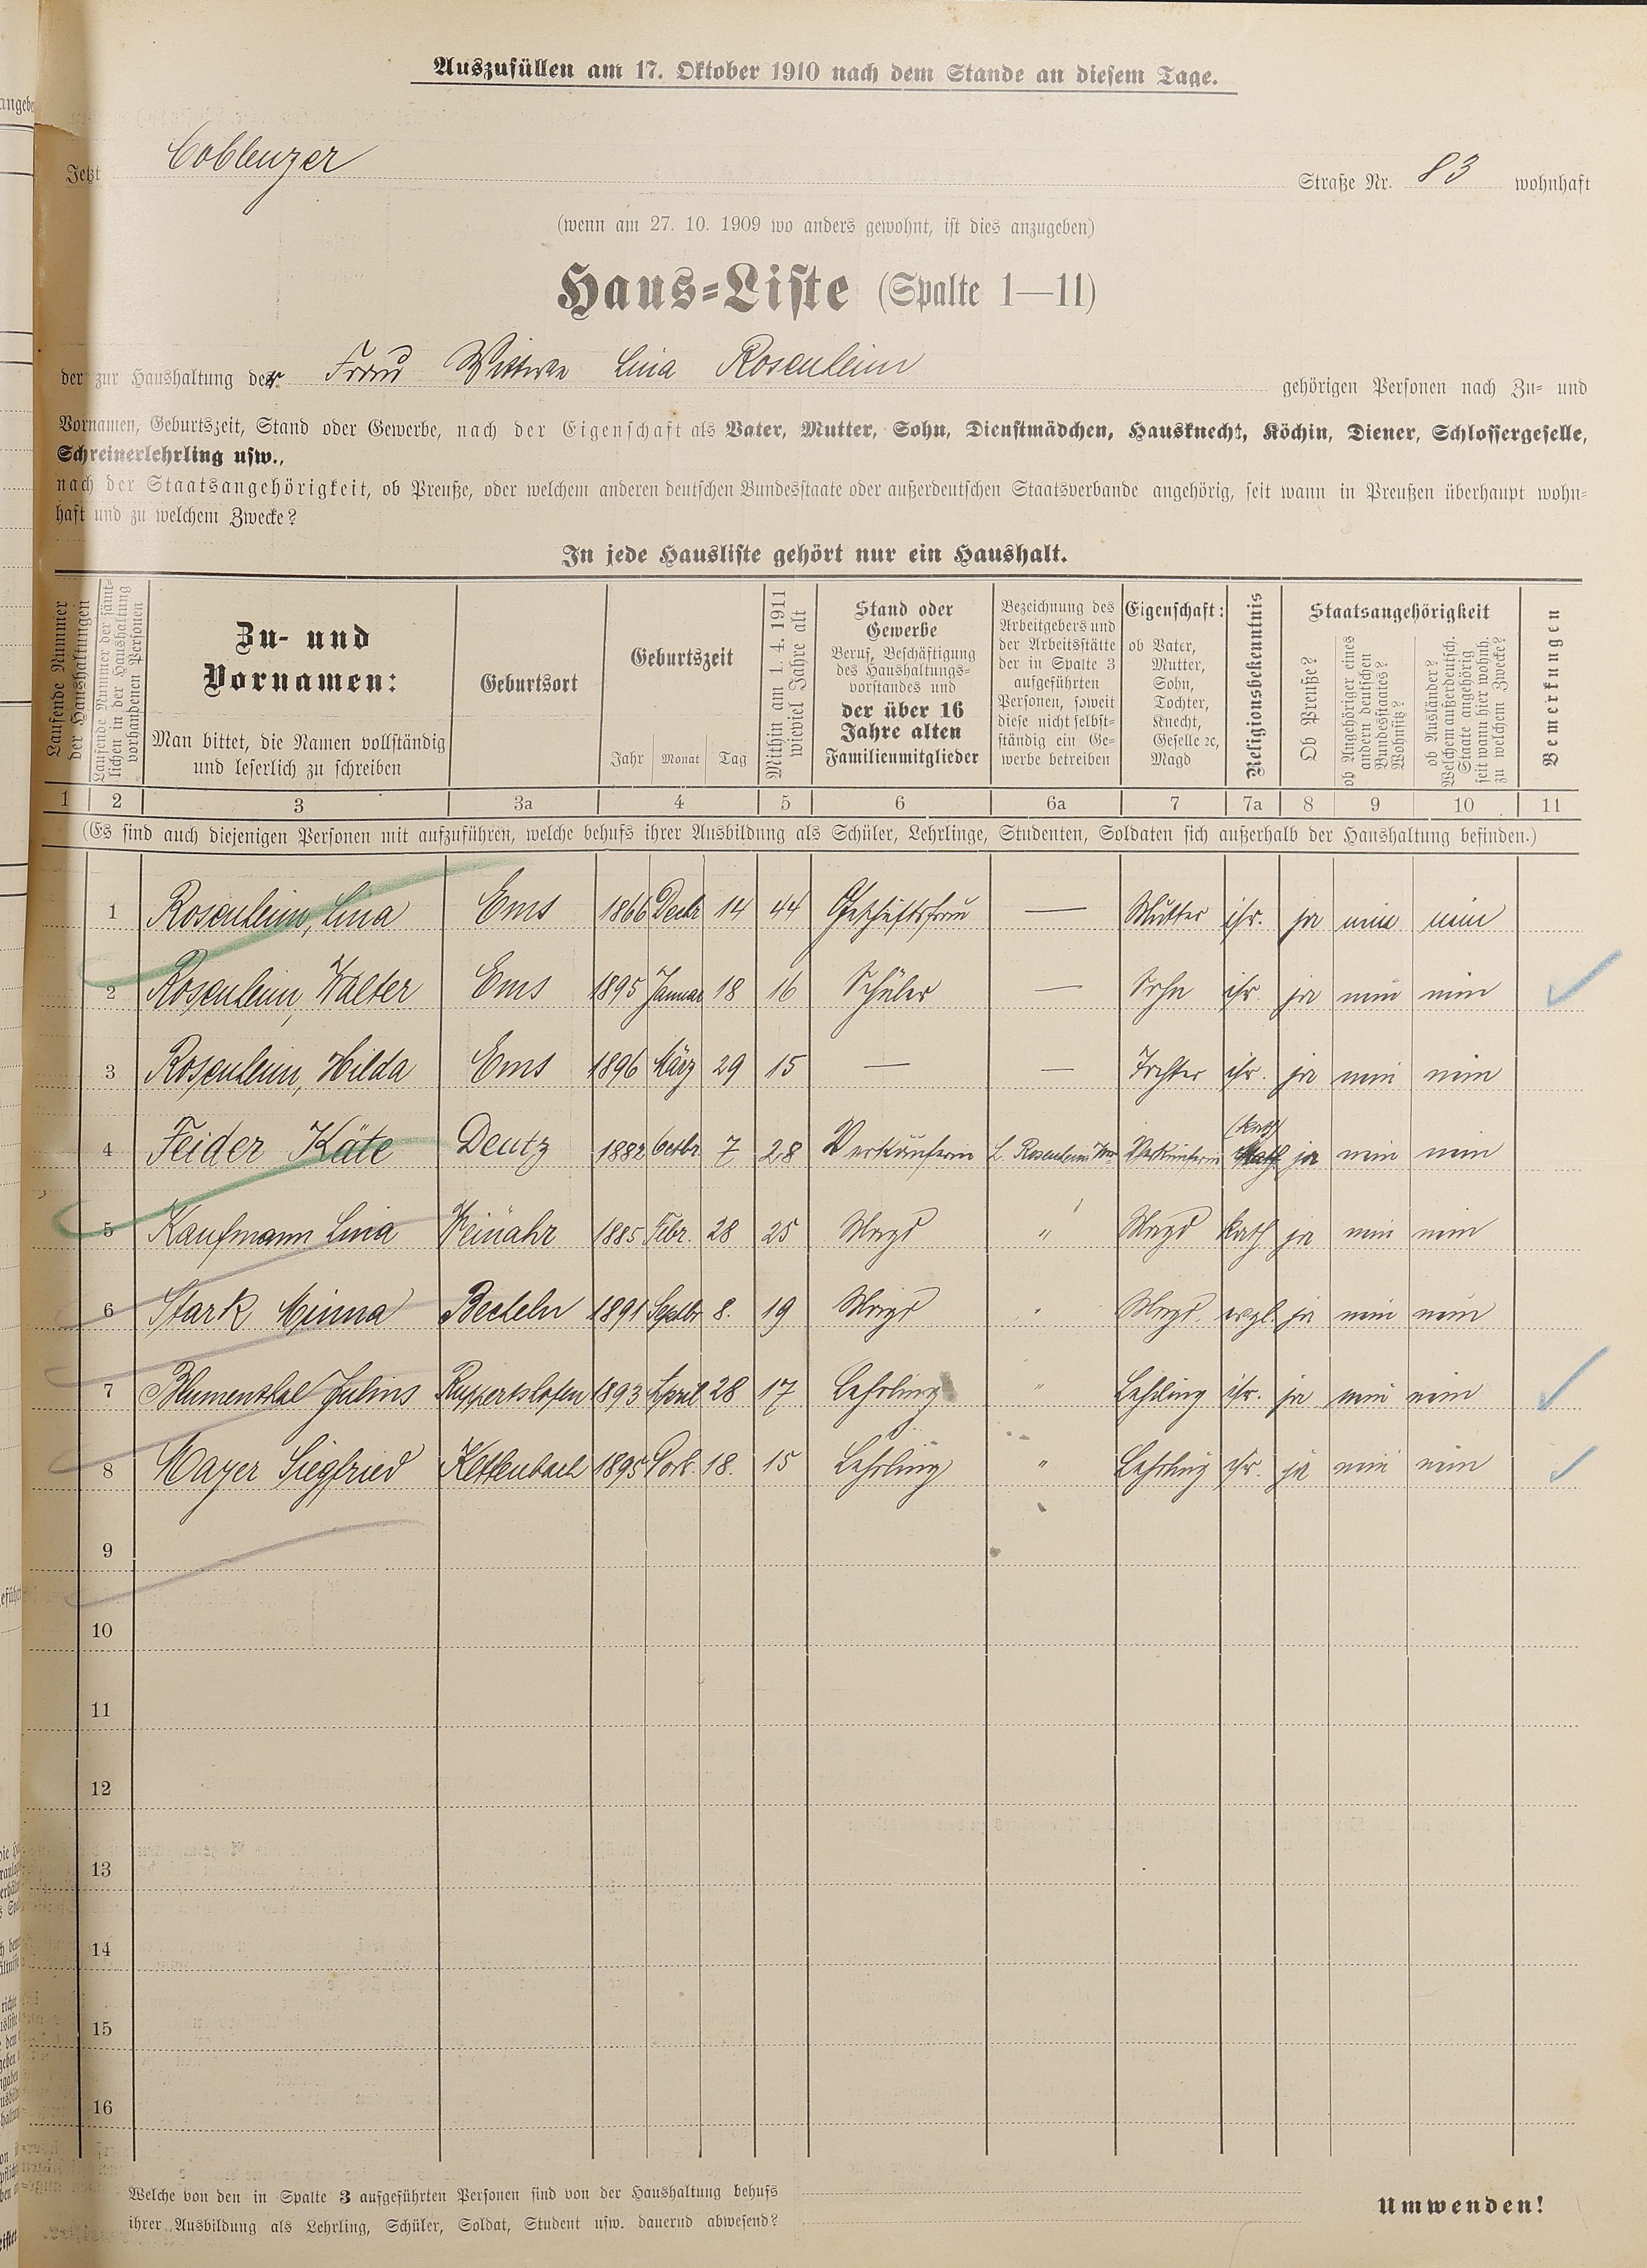 Auszufüllen am 17. Oktober 1910 nach dem Stande an diesem Tage.
Jetzt Coblenzer Straße Nr. 83 wohnhaft
(wenn am 27. 10. 1909 wo anders gewohnt, ist dies anzugeben)
Haus-Liste (Spalte 1—11)
der zur Haushaltung der Frau Wittwe Lina Rosenheim gehörigen Personen nach Zu- und
Vornamen, Geburtszeit, Stand oder Gewerbe, nach der Eigenschaft als Vater, Mutter, Sohn, Dienstmädchen, Hausknecht, Köchin, Diener, Schlossergeselle,
Schreinerlehrling usw.,
nach der Staatsangehörigkeit, ob Preuße, oder welchem anderen deutschen Bundesstaate oder außerdeutschen Staatsverbande angehörig, seit wann in Preußen überhaupt wohn-
haft und zu welchem Zwecke?
In jede Hausliste gehört nur ein Haushalt.
Laufende Nummer
der Haushaltungen
Laufende Nummer der sämt-
lichen in der Haushaltung
vorhandenen Personen
Zu- und
Vornamen:
Man bittet, die Namen vollständig
und leserlich zu schreiben
Geburtsort
Geburtszeit
Jahr Monat Tag
Mithin am 1. 4. 1911
wieviel Jahre alt
Stand oder
Gewerbe
Beruf, Beschäftigung
des Haushaltungs-
vorstandes und
der über 16
Jahre alten
Familienmitglieder
Bezeichnung des
Arbeitgebers und
der Arbeitsstätte
der in Spalte 3
aufgeführten
Personen, soweit
diese nicht selbst-
ständig ein Ge-
werbe betreiben
Eigenschaft:
ob Vater,
Mutter,
Sohn,
Tochter,
Knecht,
Geselle ꝛc,
Magd
Religionsbekenntnis
Staatsangehörigkeit
Ob Preuße?
ob Angehöriger eines
andern deutschen
Bundesstaates?
Wohnsitz?
ob Ausländer?
Welchem außerdeutsch.
Staate angehörig
seit wann hier wohnh.
zu welchem Zwecke?
Bemerkungen
1 2 3 3a 4 5 6 6a 7 7a 8 9 10 11
(Es sind auch diejenigen Personen mit aufzuführen, welche behufs ihrer Ausbildung als Schüler, Lehrlinge, Studenten, Soldaten sich außerhalb der Haushaltung befinden.)
1 Rosenheim, Lina Ems 1866 Decbr 14 44 Geschäftsfrau — Mutter isr. ja nein nein
2 Rosenheim, Walter Ems 1895 Januar 18 16 Schüler — Sohn isr ja nein nein
3 Rosenheim, Hilda Ems 1896 März 29 15 — — Tochter isr. ja nein nein
4 Feider Käte Deutz 1882 Octbr. 7 28 Verkäuferin L. Rosenheim Verkäuferin (kath) ja nein nein
5 Kaufmann Lina Weinähr 1885 Febr. 28 25 Magd " Magd kath ja nein nein
6 Stark Minna Becheln 1891 Septbr 8. 19 Magd " Magd. evgl. ja nein nein
7 Blumenthal Julius Ruppertshofen 1893 April 28 17 Lehrling " Lehrling isr. ja nein nein
8 Mayer Siegfried Kettenbach 1895 18. 15 Lehrling " Lehrling isr. ja nein nein
9
10
11
12
13
14
15
16
Welche von den in Spalte 3 aufgeführten Personen sind von der Haushaltung behufs
ihrer Ausbildung als Lehrling, Schüler, Soldat, Student usw. dauernd abwesend?
Umwenden!